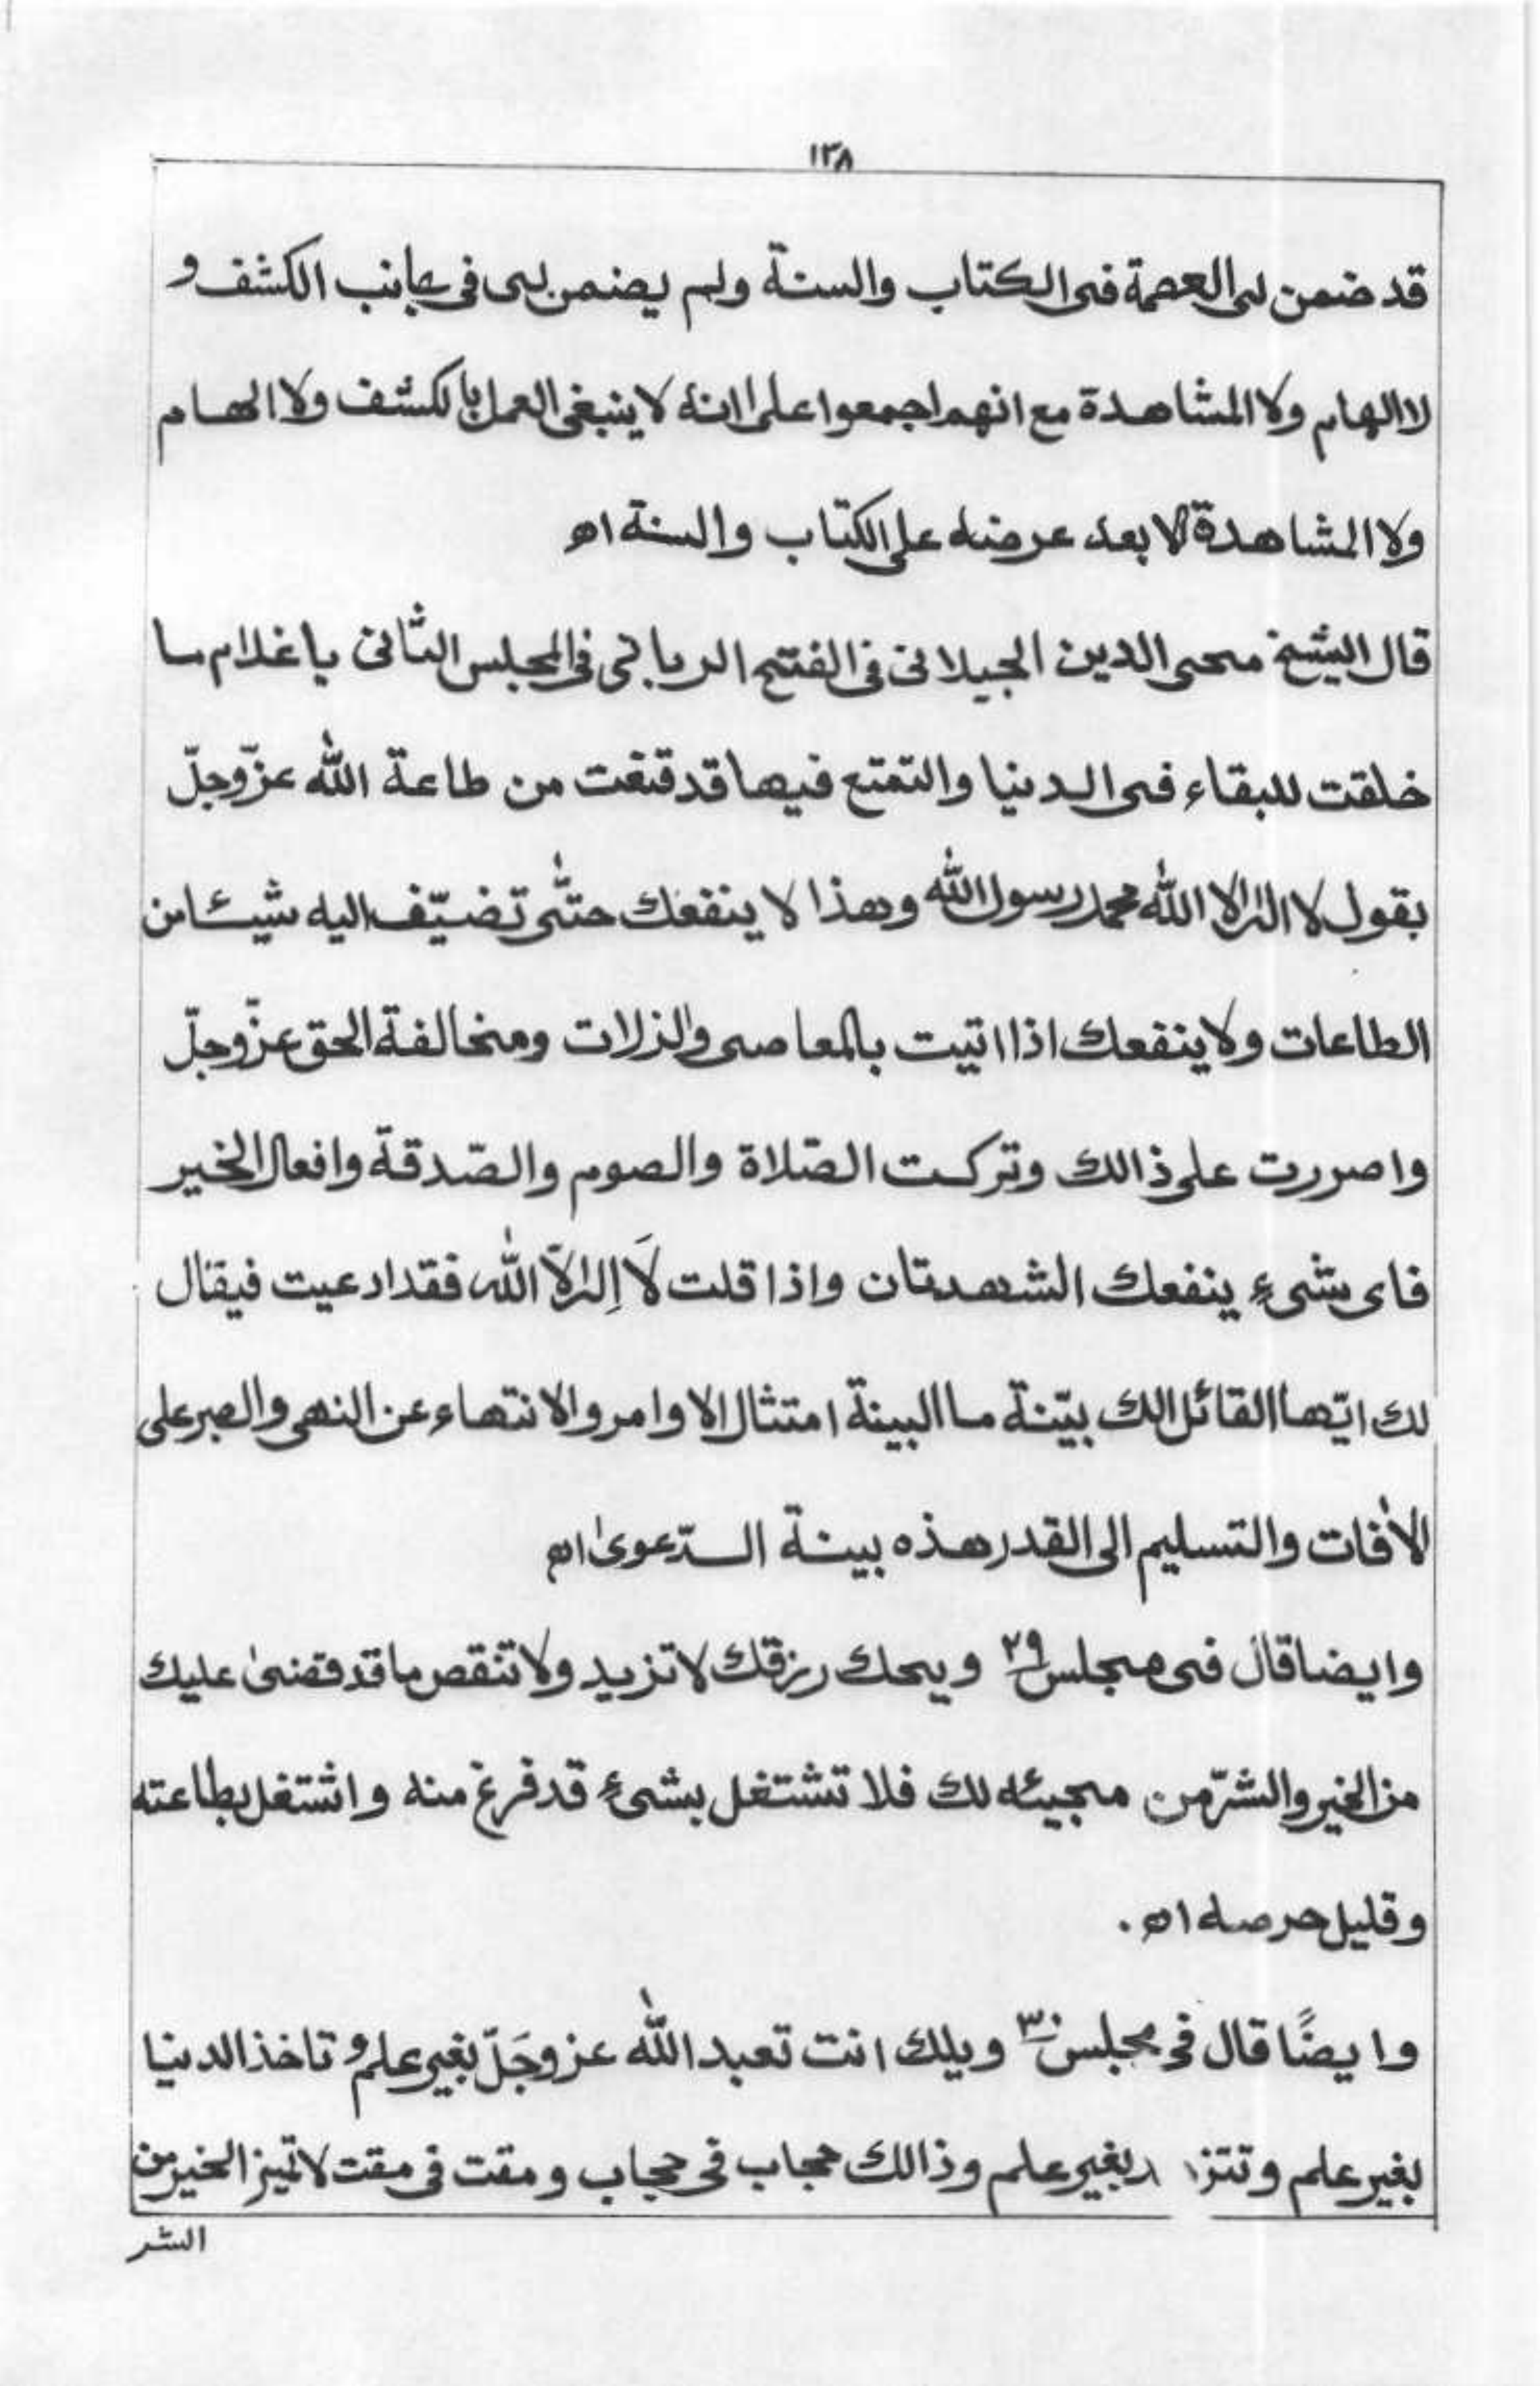 ١٣٨
قد ضمن لى العصمة فى الكتاب والسنة ولم يضمن لى فى جانب الكشف و
لا الهام ولا المشاهدة مع انهم اجمعوا على انه لا ينبغى العمل بالكشف ولا الهام
ولا المشاهدة الا بعد عرضه على الكتاب والسنة اھ
قال الشيخ محى الدين الجيلانى فى الفتح الربانى فى المجلس الثانى يا غلام ما
خلقت للبقاء فى الدنيا والتمتع فيها قد قنعت من طاعة الله عزّ وجلّ
بقول لا اله الا الله محمد رسول الله وهذا لا ينفعك حتّٰى تضيّف اليه شيئا من
الطاعات ولا ينفعك اذا اتيت بالمعاصى والزلات ومخالفة الحق عزّ وجلّ
واصررت على ذالك وتركت الصّلاة والصوم والصّدقة وافعال الخير
فاى شىءٍ ينفعك الشهدتان واذا قلت لَا اِلٰه الّا الله فقد ادعيت فيقال
لك ايّها القائل الك بيّنة ما البينة امتثال الاوامر والانتهاء عن النهى والصبر على
الاٰفات والتسليم الى القدر هذه بينة الدّعوىٰ اھ
وايضا قال فى مجلس ٢٩ ويحك رزقك لا تزيد ولا تنقص ما قد قضىٰ عليك
من الخير والشرّ من مجيئه لك فلا تشتغل بشىءٍ قد فرغ منه واشتغل بطاعته
وقليل حرصه اھ .
وايضًا قال فى مجلس ٣٠ ويلك انت تعبد الله عز وجَلّ بغير علم و تاخذ الدنيا
بغير علم و بغير علم وذالك حجاب فى حجاب ومقت فى مقت لا تميز الخير من
الشر